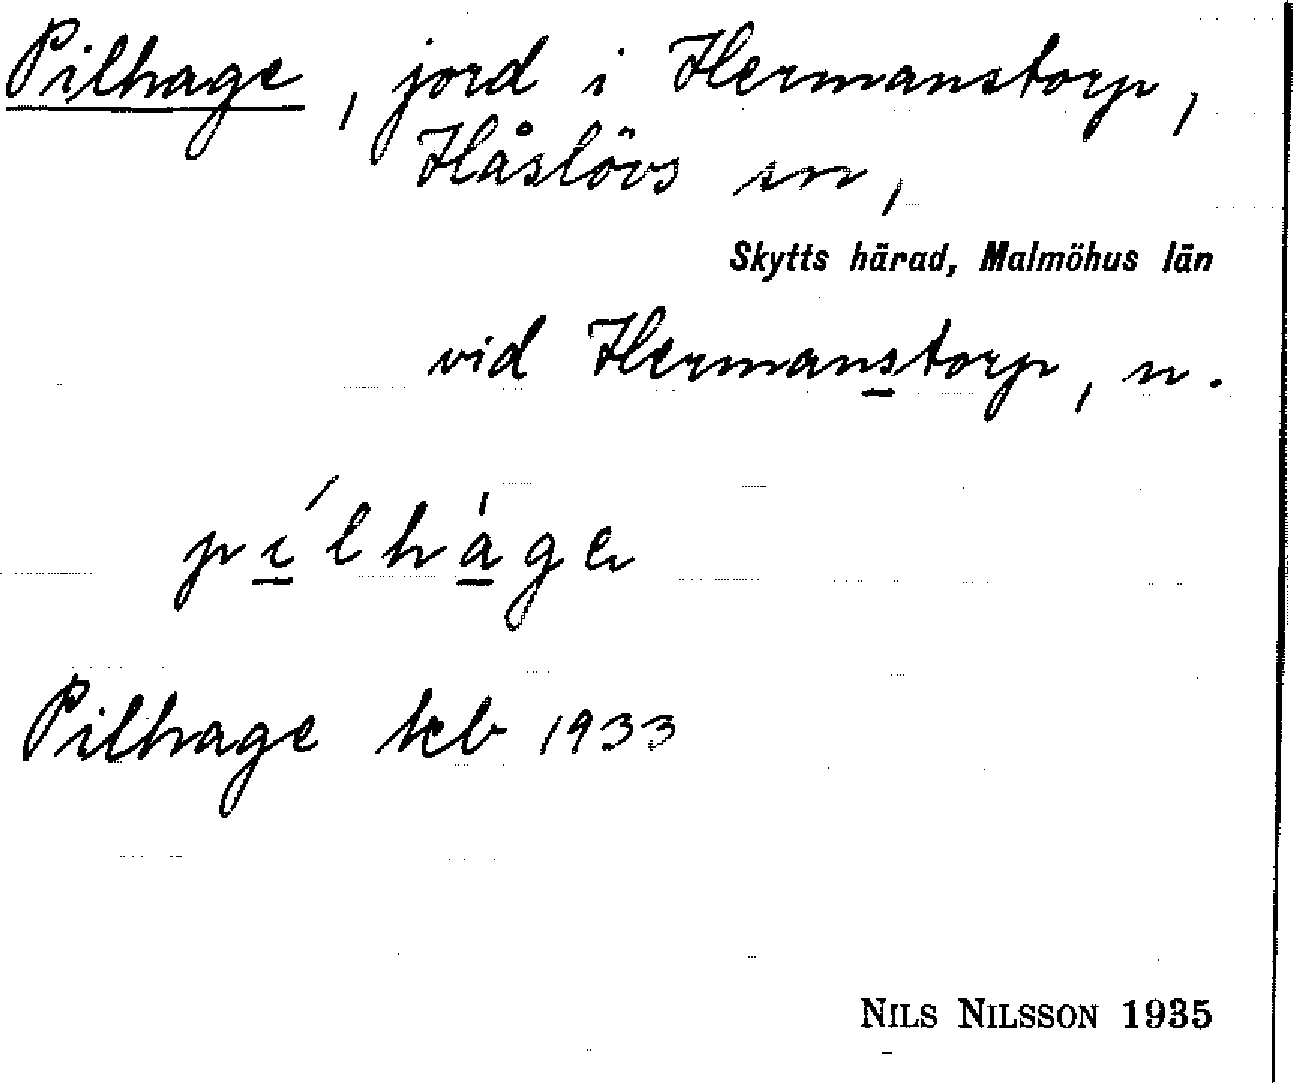 Pilhage, jord i Hermanstorp,
Håslövs sn,
Skytts härad, Malmöhus län
vid Hermanstorp, n.
pí̲lhà̲ge
Pilhage kb 1933
NILS NILSSON 1935